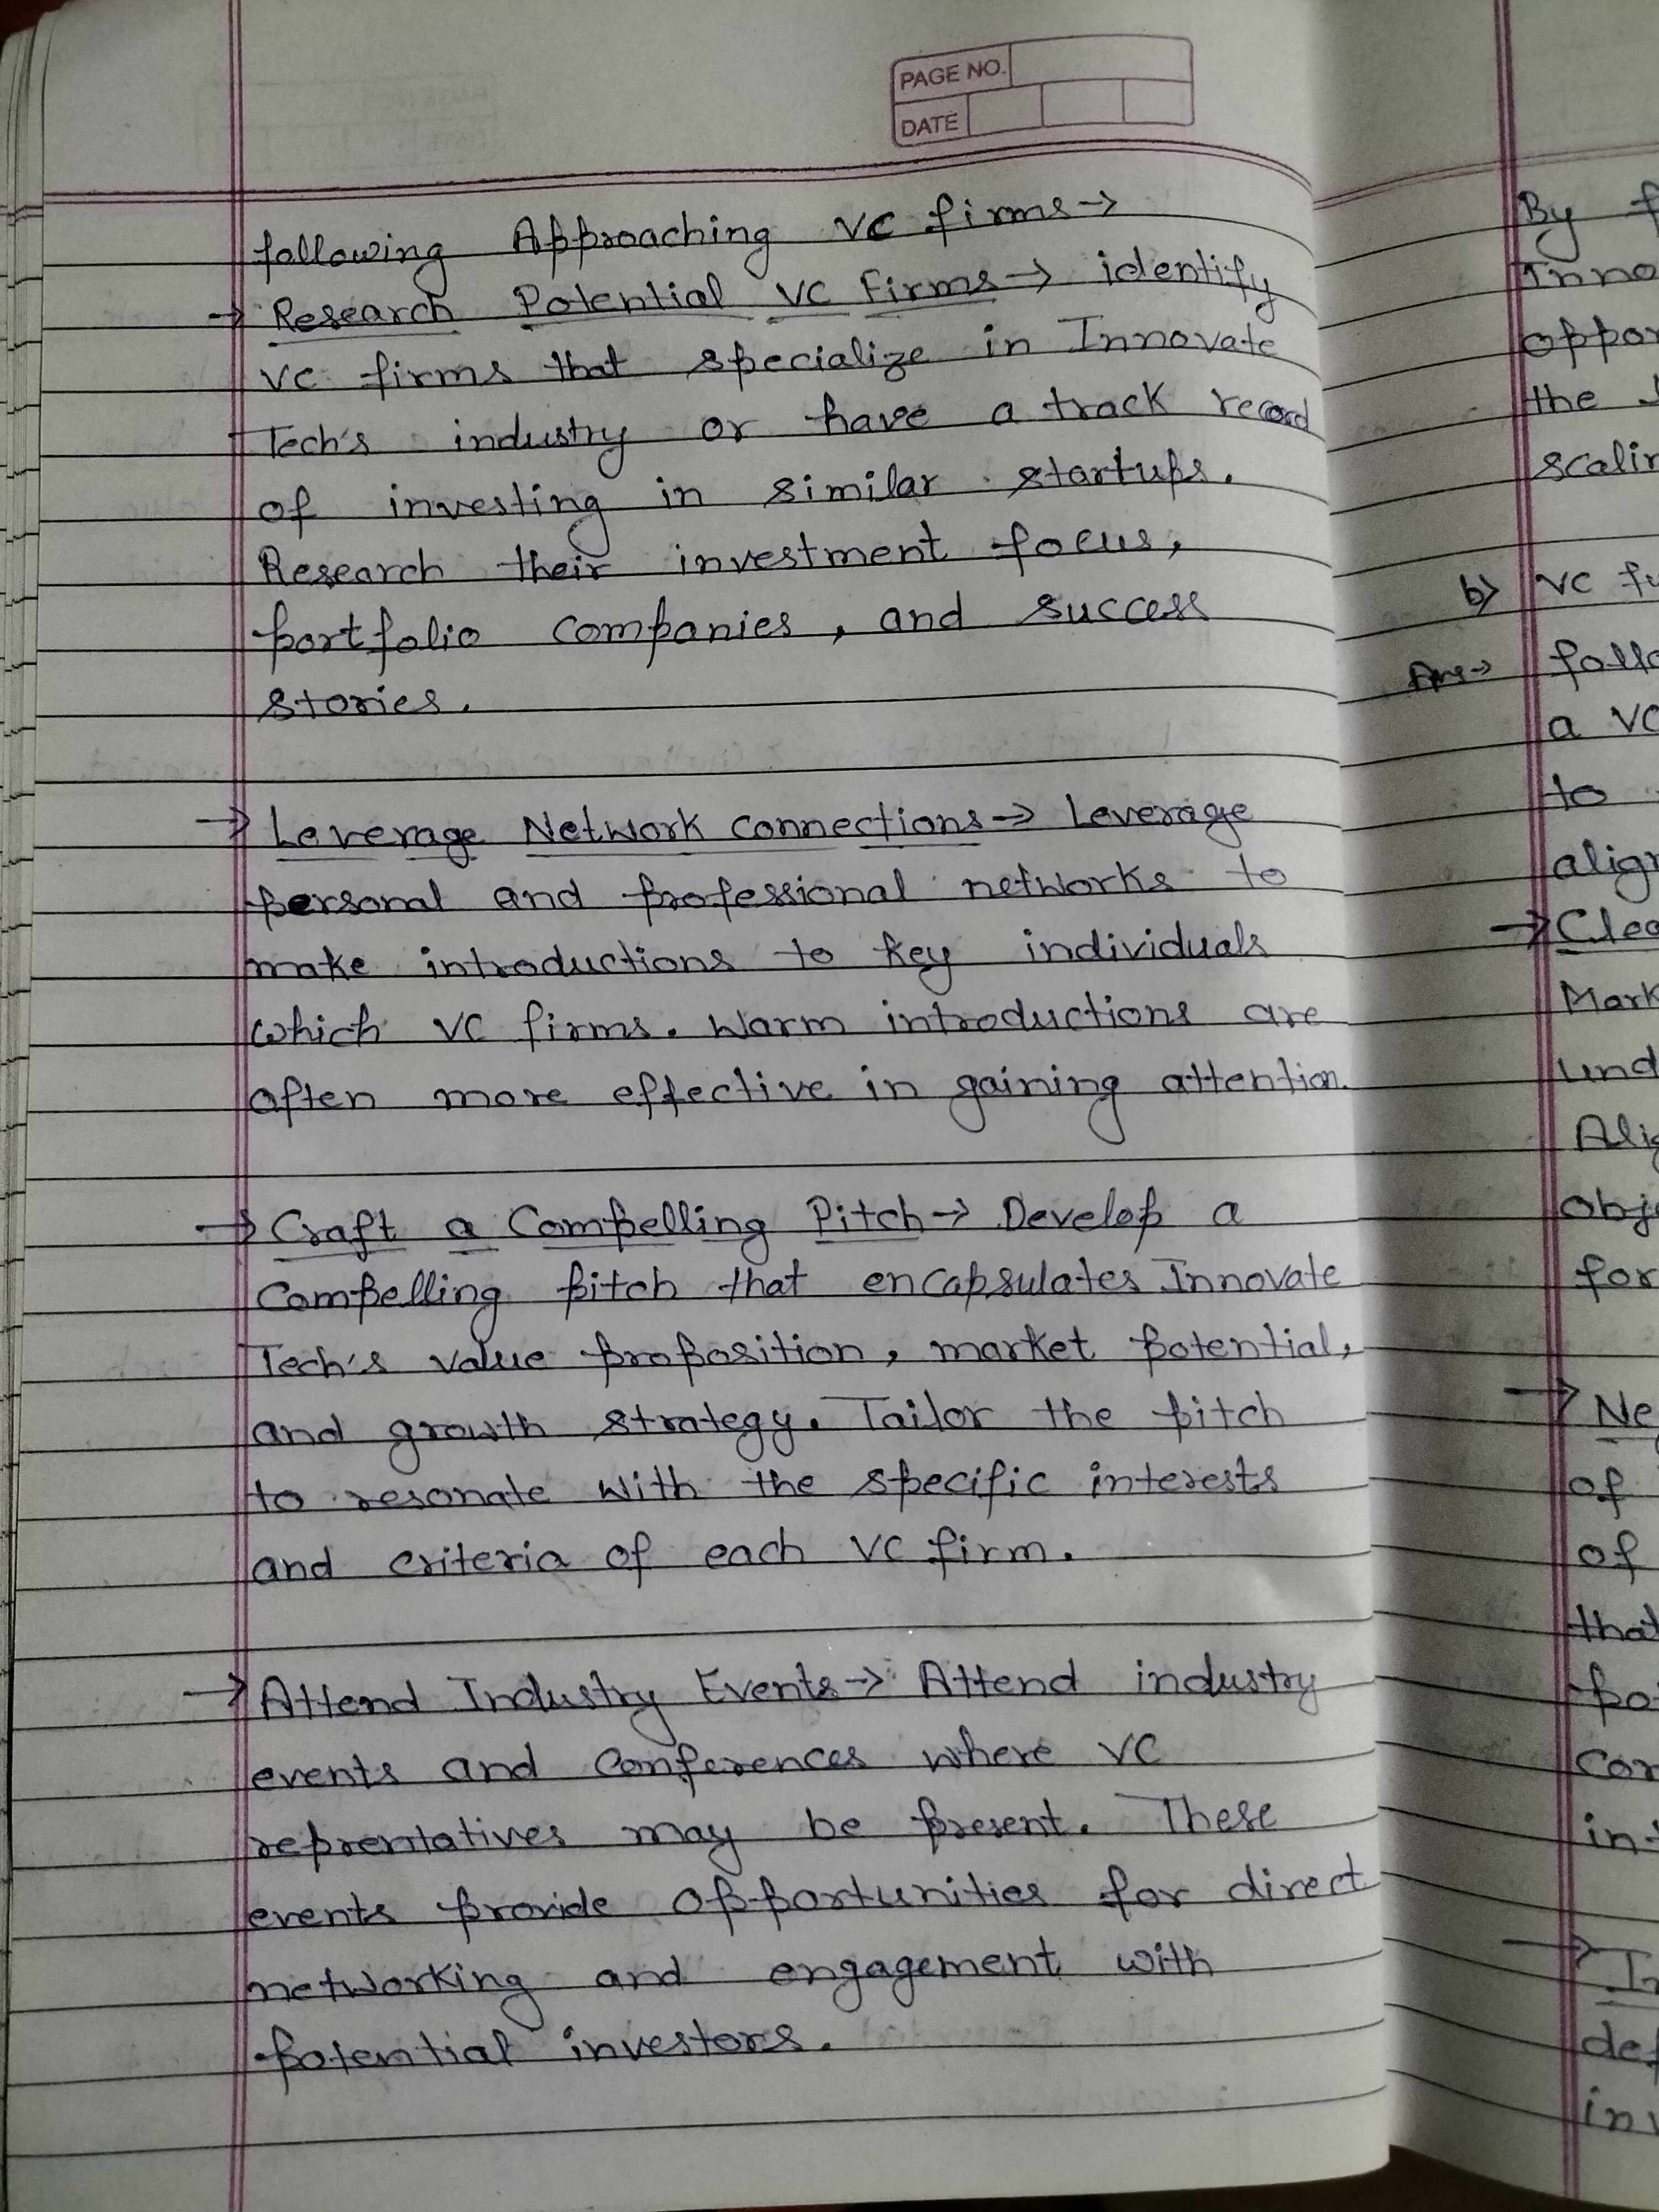 PAGE NO.
DATE
following Approaching VC firms→
→ Research Potential VC Firms→ identify
VC firms that specialize in Innovate
Tech's industry or have a track record
of investing in similar startups.
Research their investment focus,
portfolio companies, and success
stories.
→ Leverage Network connections→ Leverage
personal and professional networks to
make introductions to key individuals
which VC firms. Warm introductions are
often more effective in gaining attention.
→ Craft a Compelling Pitch→ Develop a
Compelling pitch that encapsulates Innovate
Tech's value proposition, market potential,
and growth strategy. Tailor the pitch
to resonate with the specific interests
and criteria of each VC firm.
→ Attend Industry Events→ Attend industry
events and conferences where VC
reprentatives may be present. These
events provide opportunities for direct
networking and engagement with
potential investors.
By f
Inno
oppor
the
scalin
b) VC fu
Ans→ follo
a VC
to
align
→ Clea
Mark
und
Alig
Obje
for
→ Ne
of
of
that
po
Con
in
→ In
def
inv